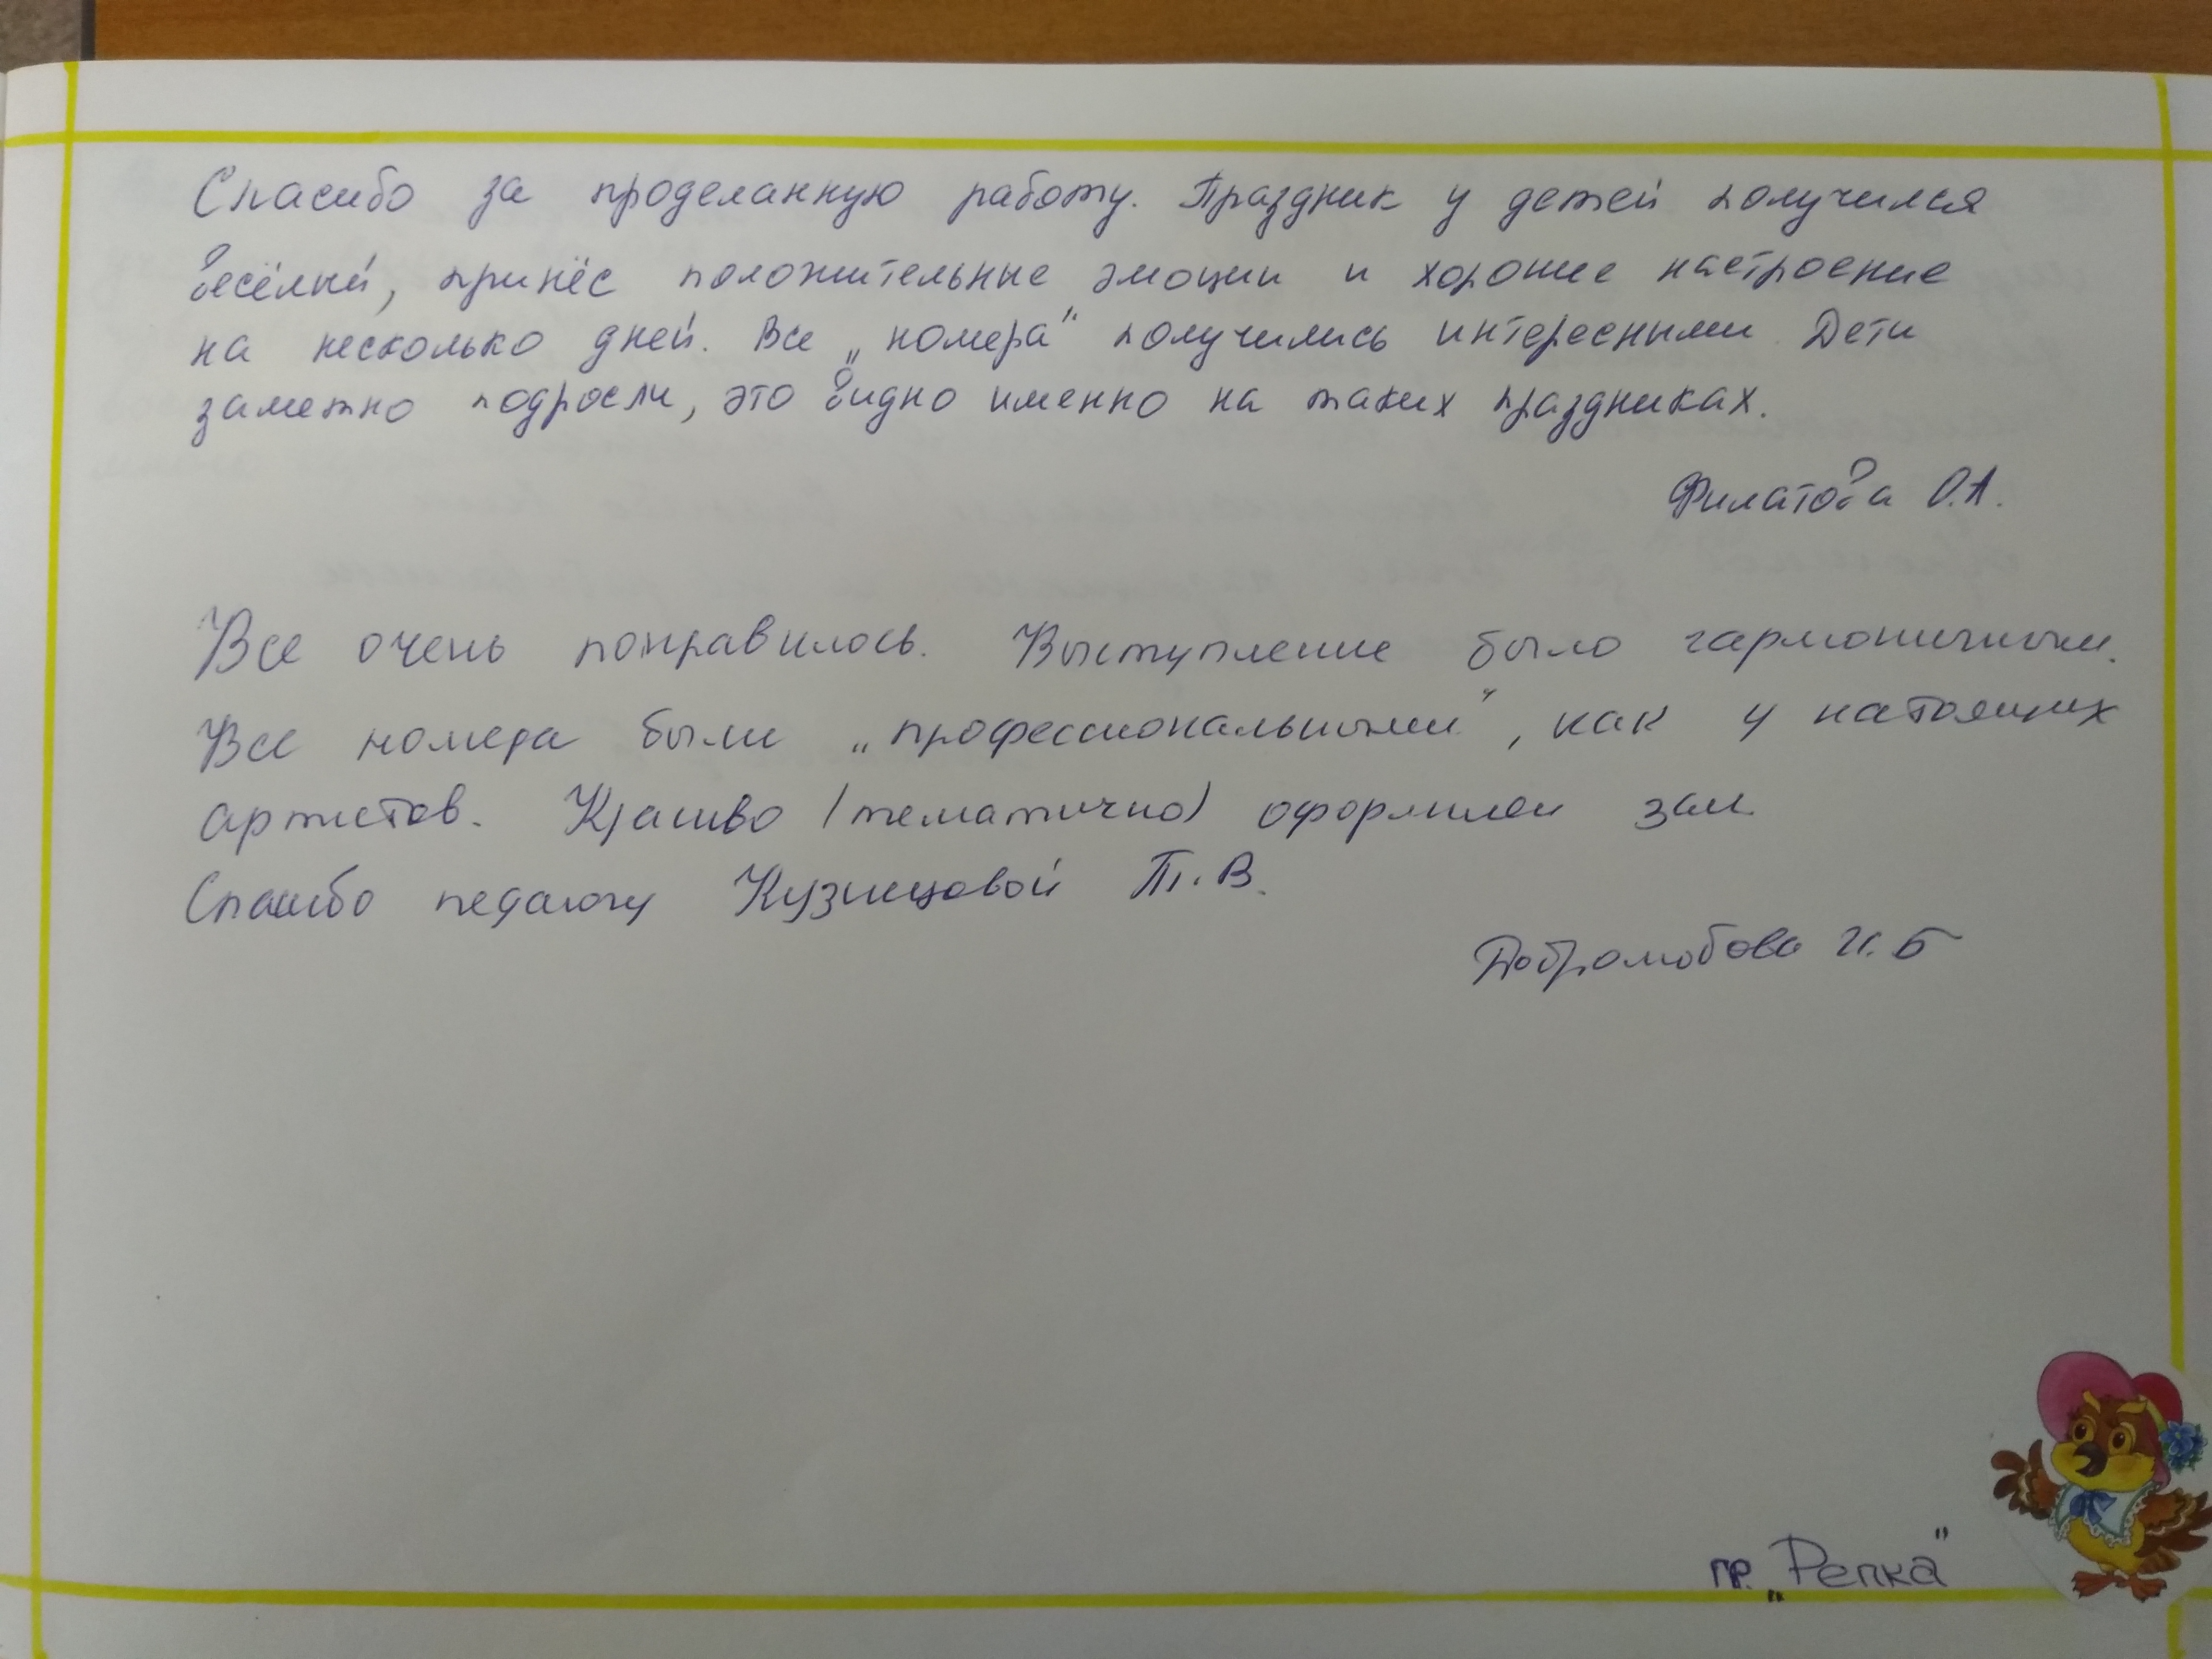 Спасибо за проделанную работу. Праздник у детей получился
весёлый, принёс положительные эмоции и хорошее настроение
на несколько дней. Все „номера" получились интересными. Дети
заметно подросли, это видно именно на таких праздниках.
Филатова О.А.
Все очень понравилось. Выступление было гармоничным.
Все номера были „профессиональными", как у настоящих
артистов. Красиво (тематично) оформлен зал.
Спасибо педагогу Кузнецовой Т.В.
Добролюбова И.Б
гр. „Репка"